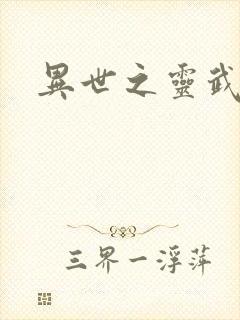 異世之靈武
三界一浮萍